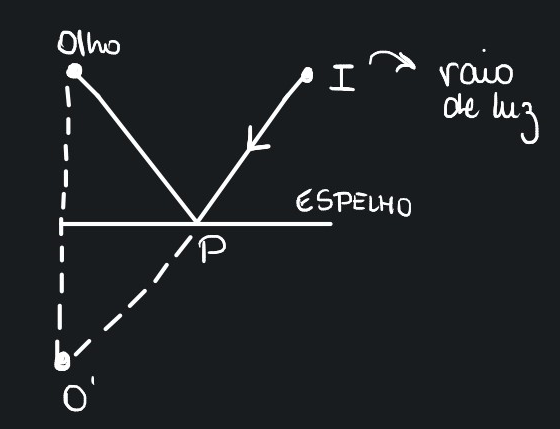 Olho
I
raio
de luz
ESPELHO
P
O'